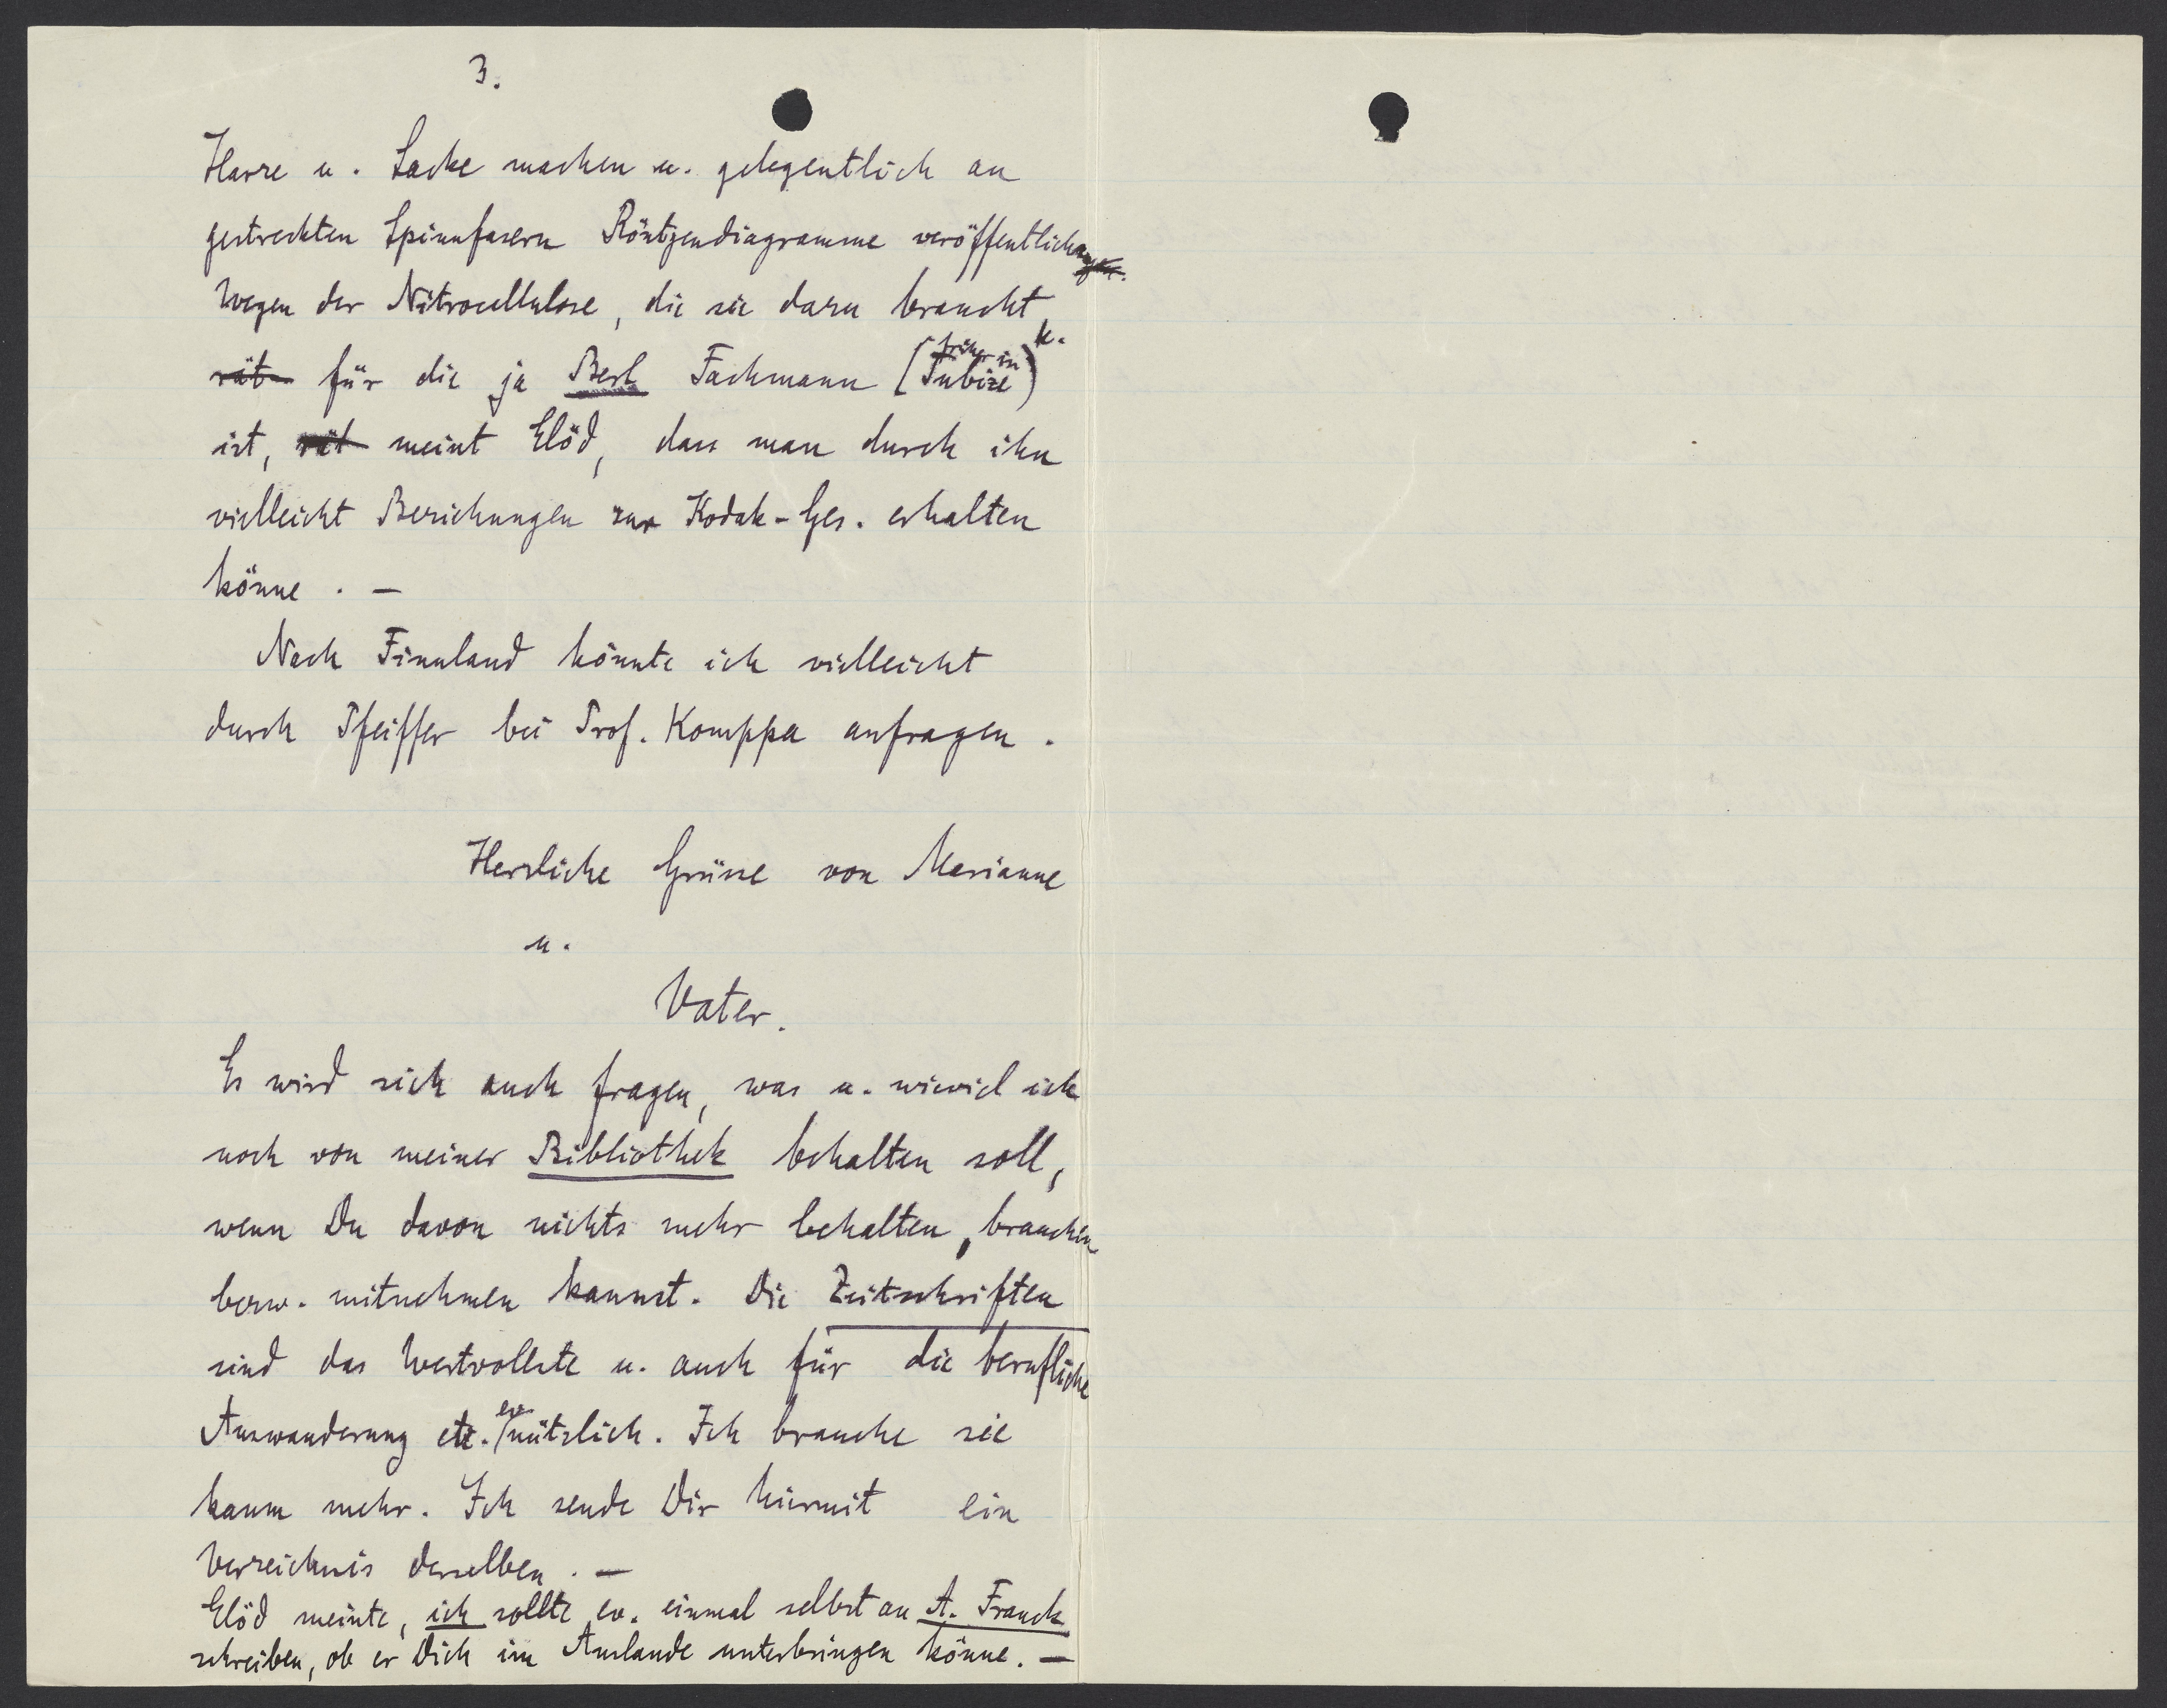 3.
Harze u. Lacke machen u. gelegentlich an
gestreckten Spinnfasern Röntgendiagramme veröffentlichen.
Wegen der Nitrocellulose, die sie dazu braucht,
rät für die ja Berl Fachmann (früher in Tubize)
ist, rät meint Elöd, dass man durch ihn
vielleicht Beziehungen zur Kodak-Ges. erhalten
könne. –
Nach Finnland könnte ich vielleicht
durch Pfeiffer bei Prof. Komppa anfragen.
Herzliche Grüsse von Marianne
u.
Vater.
Es wird sich auch fragen, was u. wieviel ich
noch von meiner Bibliothek behalten soll,
wenn Du davon nichts mehr behalten, brauchen
bezw. mitnehmen kannst. Die Zeitschriften
sind das Wertvollste u. auch für die berufliche
Auswanderung etc. ev. nützlich. Ich brauche sie
kaum mehr. Ich sende Dir hiermit ein
Verzeichnis derselben. –
Elöd meinte, ich sollte ev. einmal selbst an A. Franck
schreiben, ob er Dich im Auslande unterbringen könne. –